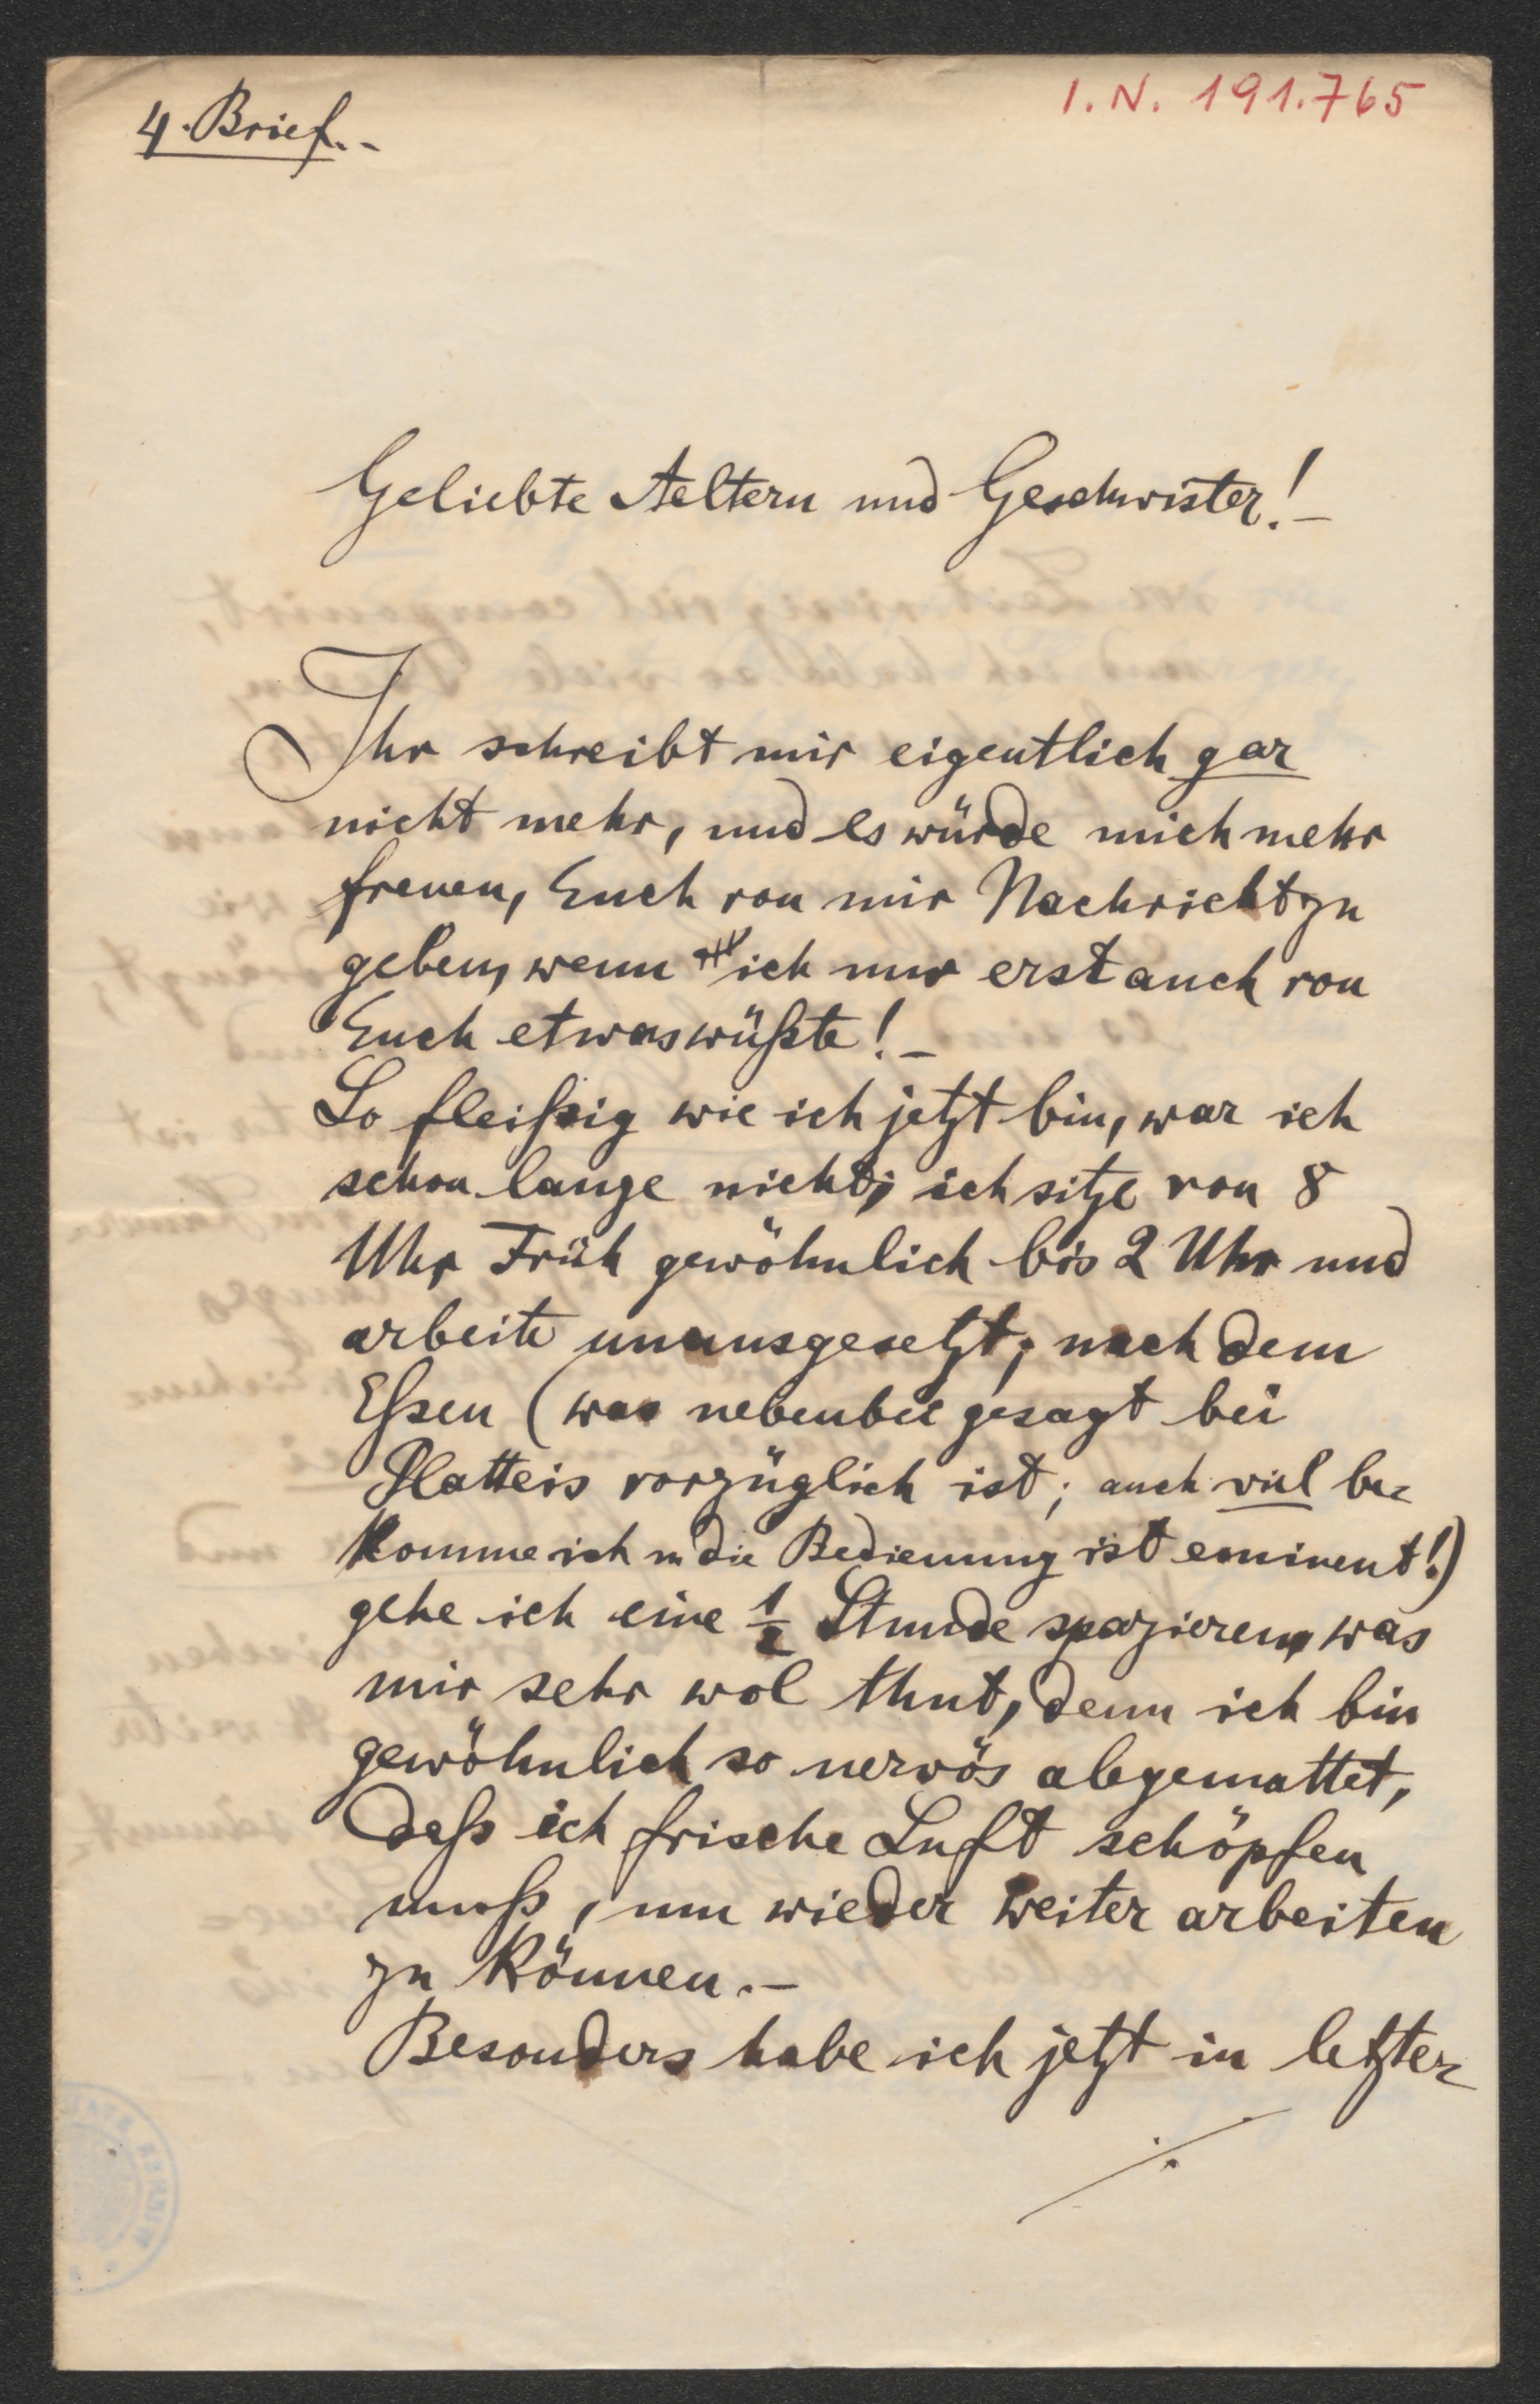 4. Brief.-
I.N. 191.765
Geliebte Aeltern und Geschwister!-
Ihr schreibt mir eigentlich gar
nicht mehr, und es würde mich mehr
freuen, Euch von mir Nachricht zu
geben, wenn ich nur erst auch von
Euch etwas wüßte!-
So fleißig wie ich jetzt bin, war ich
schon lange nicht; ich sitze von 8
Uhr Früh gewöhnlich bis 2 Uhr und
arbeite unausgesetzt; nach dem
Eßen (was nebenbei gesagt bei
Platteis vorzüglich ist; auch viel be=
komme ich u die Bedienung ist eminent!)
gehe ich eine 1/2 Stunde spazieren, was
mir sehr wol thut, denn ich bin
gewöhnlich so nervös abgemattet,
daß ich frische Luft schöpfen
muß, um wieder weiter arbeiten
zu können.-
Besonders habe ich jetzt in letzter
./.